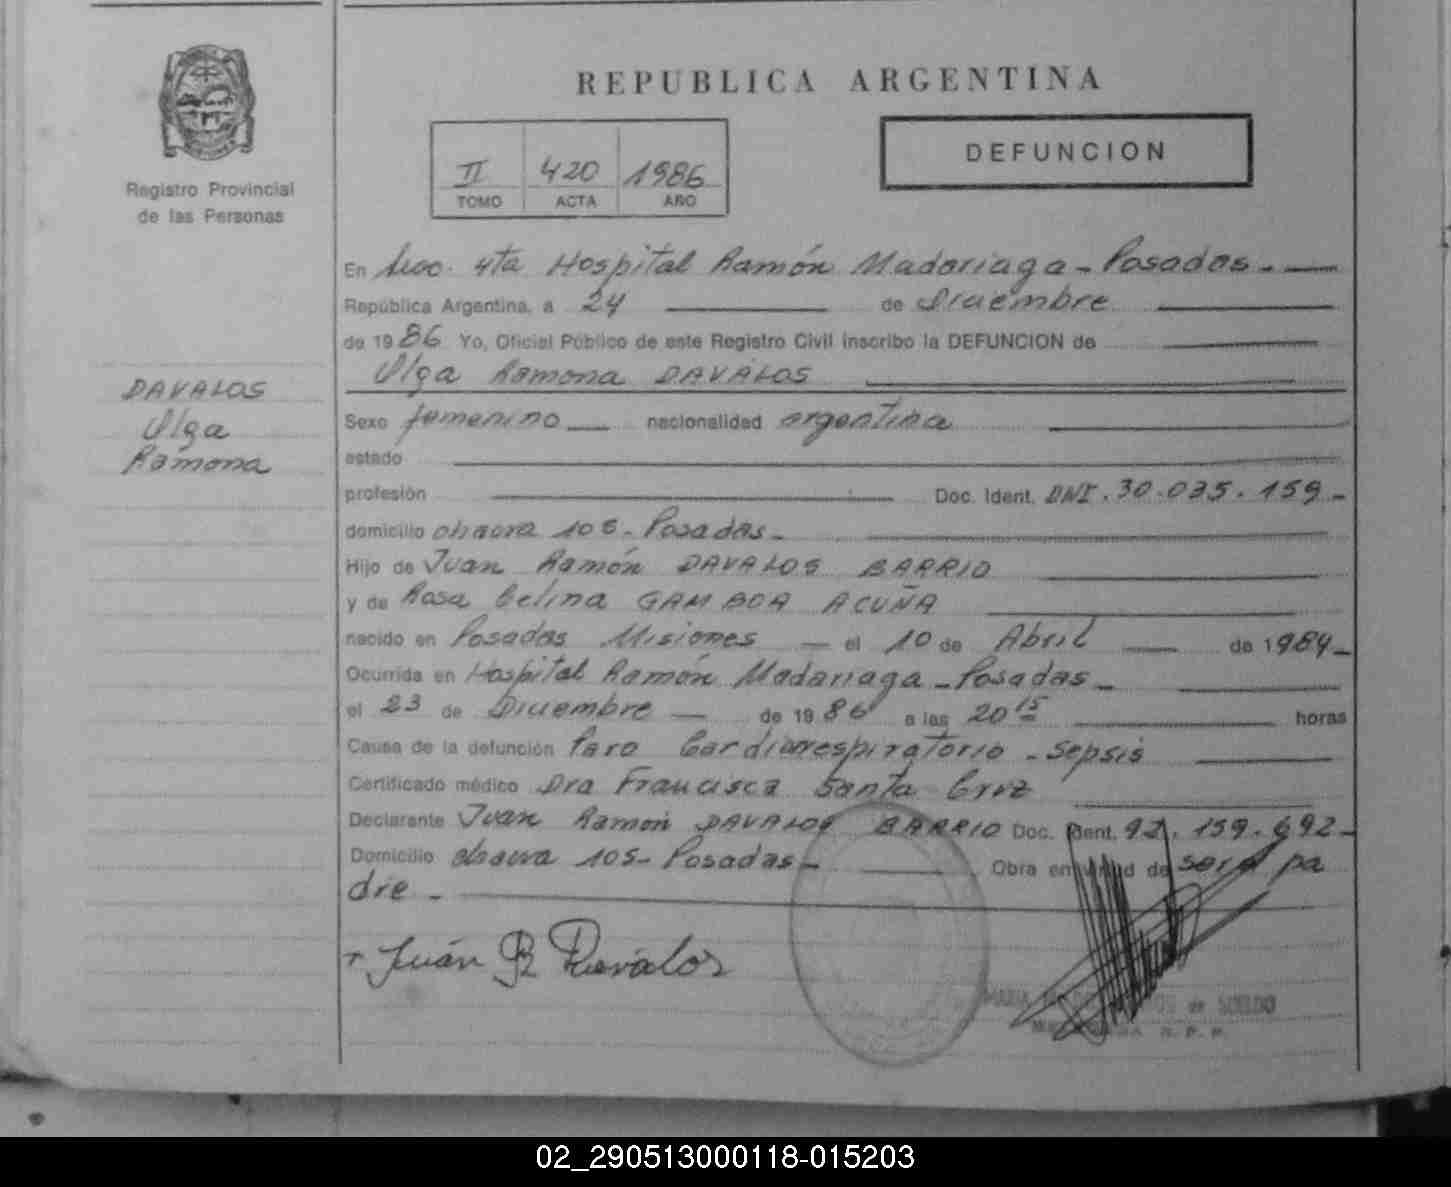 REPUBLICA ARGENTINA
DEFUNCION
II 420 1986
TOMO ACTA AÑO
Registro Provincial
de las Personas
DAVALOS
Olga
Ramona
En Secc. 4ta Hospital Ramón Madariaga - Posadas. -
República Argentina, a 24 de Diciembre
de 1986 Yo, Oficial Público de este Registro Civil inscribo la DEFUNCION de
Olga Ramona DAVALOS
Sexo femenino nacionalidad argentina
estado
profesión Doc. Ident. DNI. 30.035.159 -
domicilio chacra 105 - Posadas -
Hijo de Juan Ramón DAVALOS BARRIO
y de Rosa Celina GAMBOA ACUÑA
nacido en Posadas Misiones - el 10 de Abril de 1984 -
Ocurrida en Hospital Ramón Madariaga - Posadas -
el 23 de Diciembre - de 1986 a las 20 15 horas
Causa de la defunción Paro Cardiorrespiratorio - Sepsis
Certificado médico Dra Francisca Santa Cruz
Declarante Juan Ramón DAVALOS BARRIO Doc. Ident. 92.159.692 -
Domicilio chacra 105 - Posadas - Obra en virtud de ser el pa
dre -
Juán R Davalos
de SOELDO
02_290513000118-015203